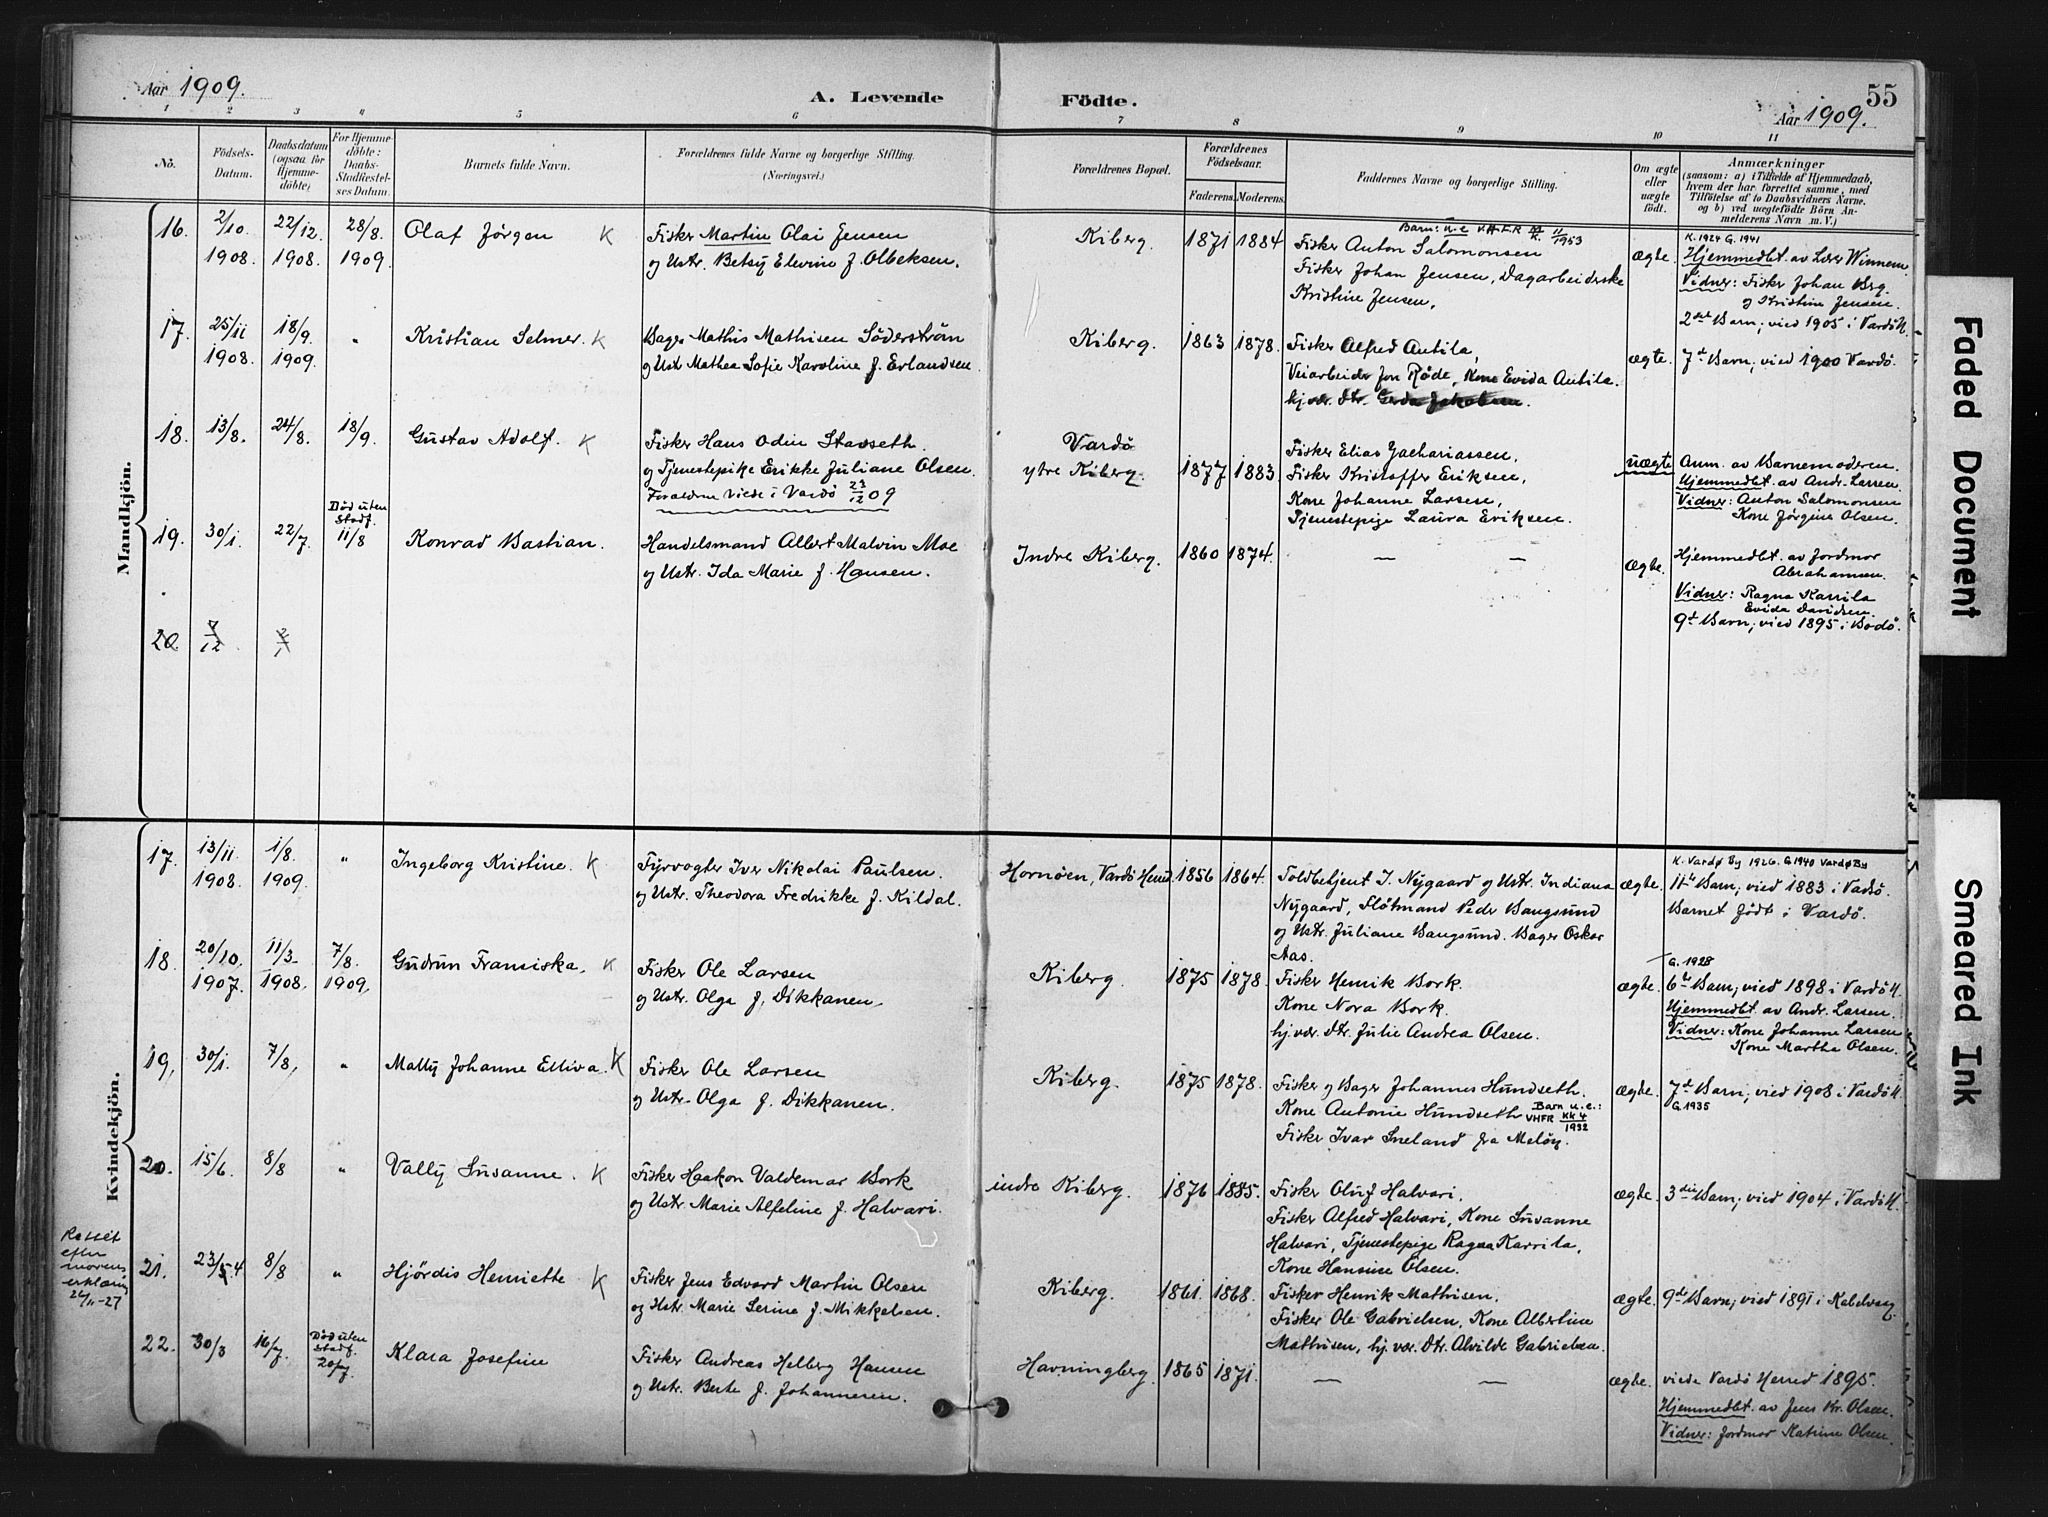 Aar 1909.
A. Levende Födte.
55
Aar 1909.
1 2 3 4 5 6 7 8 9 10 11
No.
Födsels-Datum.
Daabsdatum (ogsaa for Hjemmedöbte)
For Hjemmedöbte: Daabs-Stadfæstelses Datum.
Barnets fulde Navn.
Forældrenes fulde Navne og borgerlige Stilling.
(Næringsvei.)
Forældrenes Bopæl.
Forældrenes Födselsaar.
Faderens. Moderens.
Faddernes Navne og borgerlige Stilling.
Om ægte eller uægte födt.
Anmærkninger
(saasom: a) i Tilfælde af Hjemmedaab, hvem der har forrettet samme, med Tilföielse af to Daabsvidners Navne. og b) ved uægtefödte Börn Anmelderens Navn m. V.)
Mandkjön.
16. 2/10 1908. 22/12 1908. 28/8 1909. Olaf Jörgen K
Fisker Martin Olai Jensen
og Ustr. Betsy Elevine f. Olbeksen.
Kiberg. 1871 1884
Barn: u.e V.H.F.R 11/1953
Fisker Anton Salomonsen
Fisker Johan Jensen, Dagarbeiderske
Kristine Jensen,
ægte.
K. 1924 G. 1941
Hjemmedbt. av Lærer Winnem.
Vidner: Fisker Johan Brg.
og Kristine Jensen.
2det Barn; vied 1905 i Vardö H.
17. 25/11 1908. 18/9 1909. " Kristian Selmer. K
Bager Mathis Mathisen Söderström
og Ustr Mathea Sofie Karoline f. Erlandsen.
Kiberg. 1863 1878.
Fisker Alfred Antila,
Veiarbeider Jon Røde, Kone Evida Antila.
hj.vær. Dtr. Gerda Jakobsen.
ægte. 7de Barn; vied 1900 Vardö.
18. 13/8. 24/8. 18/9. Gustav Adolf. K
Fisker Hans Odin Stavseth.
og Tjenestepike Erikke Juliane Olsen.
Foraldrene viede i Vardö 23/12 09
Vardö
ytre Kiberg. 1877 1883.
Fisker Elias Zachariassen,
Fisker Kristoffer Eriksen,
Kone Johanne Larsen,
Tjenestepige Laura Eriksen.
uægte
Anm. av Barnemoderen.
Hjemmedbt. av Andr. Larsen.
Vidner: Anton Salomonsen
Kone Jörgine Olsen.
19. 30/1. 22/7. Död uten Stadf. 11/8 Konrad Bastian.
Handelsmand Albert Malvin Moe
og Ustr. Ida Marie f. Hansen.
Indre Kiberg. 1860 1874. — — ægte.
Hjemmedbt. av Jordmor
Abrahamsen.
Vidner: Ragna Karrila
Evida Davidsen.
9de Barn; vied 1895 i Bodö.
20 7/12 2/1
Kvindekjön.
17. 13/11 1908. 1/8 1909. " Ingeborg Kristine. K
Fyrvogter Iver Nikolai Paulsen.
og Ustr. Theodora Fredrikke f. Kildal.
Hornöen, Vardö Herred. 1856 1864.
Toldbetjent I. Nygaard og Ustr. Indiana
Nygaard, Flötmand Peder Bangsund
og Ustr. Juliane Bangsund. Bager Oskar
Aas.
ægte.
K. Vardø By 1926. G. 1940 Vardø By
11te Barn; vied 1883 i Vadsö.
Barnet födt i Vardö.
18. 20/10. 1907. 11/3 1908. 7/8. 1909. Gudrun Fransiska. K
Fisker Ole Larsen
og Ustr. Olga f. Dikkanen.
Kiberg. 1875 1878.
Fisker Henrik Bork.
Kone Nora Bork.
hj.vær. Dtr. Julie Andrea Olsen.
ægte.
G. 1928
6te Barn; vied 1898 i Vardö H.
Hjemmedbt av Andr. Larsen.
Vidner: Kone Johanne Larsen
Kone Martha Olsen.
19. 30/1. 7/8. " Mally Johanne Elliva. K
Fisker Ole Larsen
og Ustr. Olga f. Dikkanen.
Kiberg. 1875 1878.
Fisker og Bager Johannes Hundseth.
Kone Antonie Hundseth Barn u.e.: VHFR KK4/1932
Fisker Ivar Sneland fra Melöy.
ægte. 7de Barn; vied 1908 i Vardö H.
G. 1935
20. 15/6. 8/8 " Vally Susanne. K
Fisker Haakon Valdemar Bork
og Ustr. Marie Alfeline f. Halvari.
indre Kiberg. 1876 1885.
Fisker Oluf Halvari.
Fisker Alfred Halvari, Kone Susanne
Halvari, Tjenestepige Ragna Karrila,
Kone Hansine Olsen.
ægte. 3die Barn; vied 1904 i Vardö H.
Rettet efter morens erklæring 24/11-27
21. 23/5 4 8/8 " Hjördis Henriette K
Fisker Jens Edvard Martin Olsen
og Ustr. Marie Serine f. Mikkelsen.
Kiberg. 1861. 1868.
Fisker Henrik Mathisen.
Fisker Ole Gabrielsen, Kone Albertine
Mathisen, hj. vær. Dtr. Alvilde Gabrielsen.
ægte. 9de Barn; vied 1891 i Kabelvaag.
22. 30/3 16/7. Död uten stadf. 20/7 Klara Josefine
Fisker Andreas Helberg Hansen
og Ustr. Berte f. Johannesen.
Havningberg. 1865 1871. — — ægte.
viede Vardö Herred 1895.
Hjemmedbt. av Jens Kr. Olsen.
Vidner: Jordmor Katrine Olsen.
Faded Document
Smeared Ink